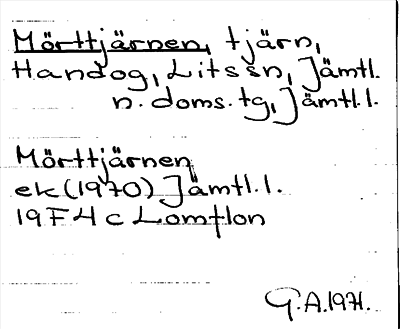 Mörttjärnen, tjärn,
Handog, Litssn, Jämtl.
n. doms. tg, Jämtl. l.
Mörttjärnen
ek (1970) Jämtl. l.
19F4c Lomtlon
G.A. 1971.